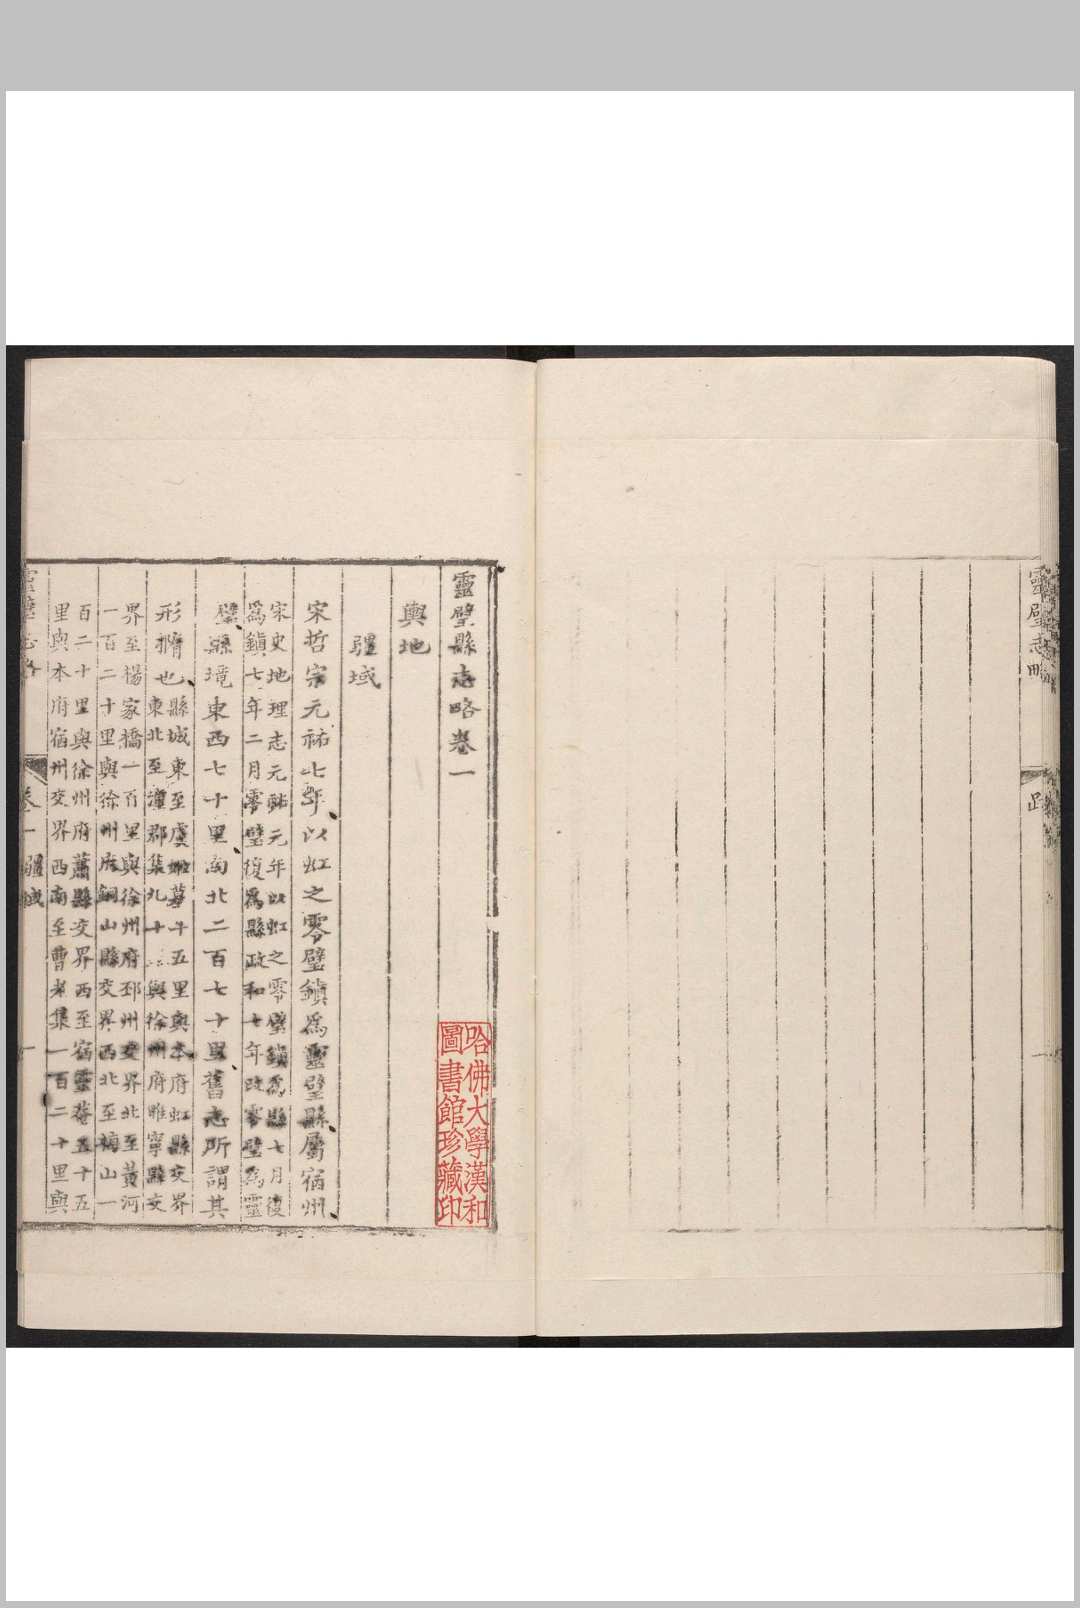 靈璧志略
跋
靈璧縣志略卷一
輿地
疆域
宋哲宗元祐七年以虹之零璧鎮爲靈璧縣屬宿州
宋史地理志元祐元年以虹之零璧鎮爲縣七月復
爲鎮七年二月零璧復爲縣政和七年改零璧爲靈
璧縣境東西七十里南北二百七十里舊志所謂其
形擠也
縣城東至虞姬墓十五里與本府虹縣交界
東北至潼郡集九十里與徐州府睢寧縣交
界至楊家橋一百里與徐州府邳州交界北至黃河
一百二十里與徐州府銅山縣交界西北至梅山一
百二十里與徐州府蕭縣交界西至宿靈菴五十五
里與本府宿州交界西南至曹老集一百二十里與
靈璧志略
卷一
疆域
一
哈佛大學漢和
圖書館珍藏印